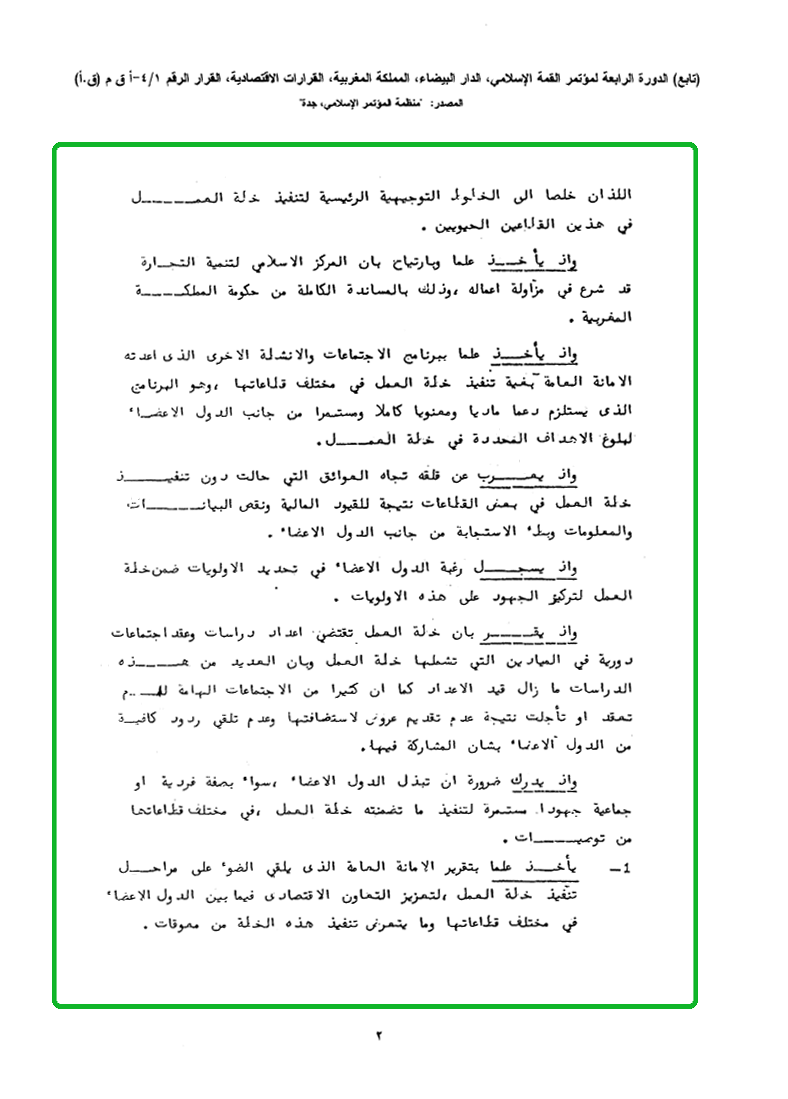 (تابع) الدورة الرابعة لمؤتمر القمة الإسلامي، الدار البيضاء، المملكة المغربية، القرارات الاقتصادية، القرار الرقم ٤/١-أ ق م (ق.أ)
المصدر: "منظمة المؤتمر الإسلامي، جدة"
اللذان خلصا الى الخطوط التوجيهية الرئيسية لتنفيذ خطة العمـــــــل
في هذين القطاعين الحيويين .
واذ يأخـــذ علما وبارتياح بان المركز الاسلامي لتنمية التجـارة
قد شرع في مزاولة اعماله ،وذلك بالمساندة الكاملة من حكومة المملكـــــة
المغربية .
واذ يأخـــذ علما ببرنامج الاجتماعات والانشطة الاخرى الذى اعدته
الامانة العامة بغية تنفيذ خطة العمل في مختلف قطاعاتها ،وهو البرنامج
الذى يستلزم دعما ماديا ومعنويا كاملا ومستمرا من جانب الدول الاعضـاء
لبلوغ الاهداف المحددة في خطة العمـــــل.
واذ يعـــــرب عن قلقه تجاه العوائق التي حالت دون تنفيـــــذ
خطة العمل في بعض القطاعات نتيجة للقيود المالية ونقص البيانـــــــات
والمعلومات وبطء الاستجابة من جانب الدول الاعضاء .
واذ يسجـــــل رغبة الدول الاعضاء في تحديد الاولويات ضمن خطة
العمل لتركيز الجهود على هذه الاولويات .
واذ يقـــــر بان خطة العمل تقتضي اعداد دراسات وعقد اجتماعات
دورية في الميادين التي تشملها خطة العمل وبان العديد من هـــــذه
الدراسات ما زال قيد الاعداد كما ان كثيرا من الاجتماعات الهامة لـــم
تعقد او تأجلت نتيجة عدم تقديم عروض لاستضافتها وعدم تلقي ردود كافيـة
من الدول الاعضاء بشان المشاركة فيها.
واذ يدرك ضرورة ان تبذل الدول الاعضاء ،سواء بصفة فردية او
جماعية جهودا مستمرة لتنفيذ ما تضمنته خطة العمل ،في مختلف قطاعاتها
من توصيـــــات .
1– يأخـــذ علما بتقرير الامانة العامة الذى يلقي الضوء على مراحـــل
تنفيذ خطة العمل ،لتعزيز التعاون الاقتصادى فيما بين الدول الاعضاء
في مختلف قطاعاتها وما يتعرض تنفيذ هذه الخطة من معوقات .
٢